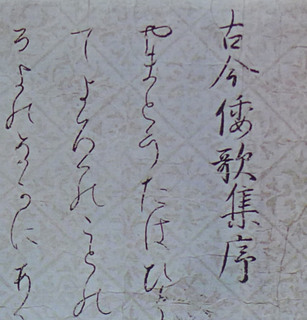 古今倭歌集序
やまとうたはひと
てよろつのことの
るよのなかにある